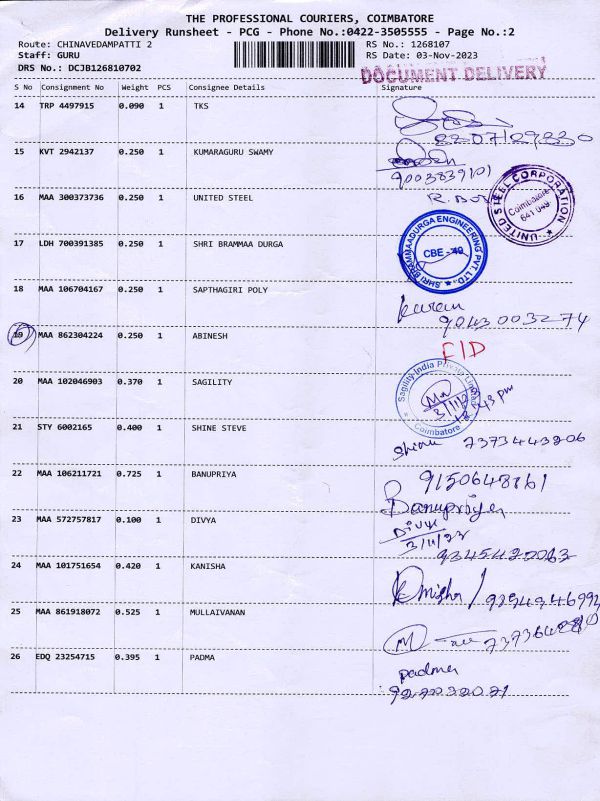 THE PROFESSIONAL COURIERS, COIMBATORE
Delivery Runsheet - PCG - Phone No.:0422-3505555 - Page No.:2
Route: CHINAVEDAMPATTI 2 RS No.: 1268107
Staff: GURU RS Date: 03-Nov-2023
DRS No.: DCJB126810702
DOCUMENT DELIVERY
S No Consignment No Weight PCS Consignee Details Signature
14 TRP 4497915 0.090 1 TKS
15 KVT 2942137 0.250 1 KUMARAGURU SWAMY
9003839101
16 MAA 300373736 0.250 1 UNITED STEEL
UNITED STEEL CORPORATION
Coimbatore
641 049
17 LDH 700391385 0.250 1 SHRI BRAMMAA DURGA
SHRI BRAMMAADURGA ENGINEERING PVT. LTD.
CBE - 49
18 MAA 106704167 0.250 1 SAPTHAGIRI POLY
9043003274
19 MAA 862304224 0.250 1 ABINESH
F/D
20 MAA 102046903 0.370 1 SAGILITY
Sagility India Private Limited
3/11/23
Coimbatore
21 STY 6002165 0.400 1 SHINE STEVE
7373443206
22 MAA 106211721 0.725 1 BANUPRIYA
9150648161
Banupriya
23 MAA 572757817 0.100 1 DIVYA
Divya
3/11/23
24 MAA 101751654 0.420 1 KANISHA
25 MAA 861918072 0.525 1 MULLAIVANAN
26 EDQ 23254715 0.395 1 PADMA
padma